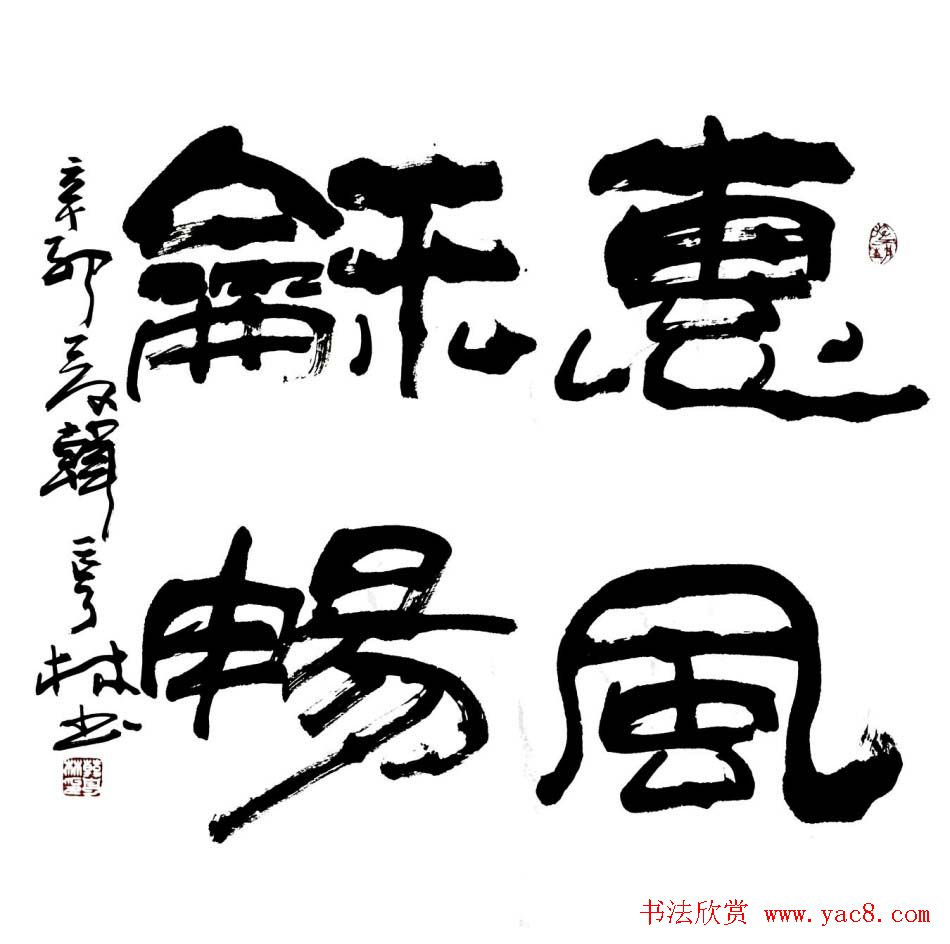 惠風
龢暢
辛卯之夏韓亨林书
书法欣赏 www.yac8.com